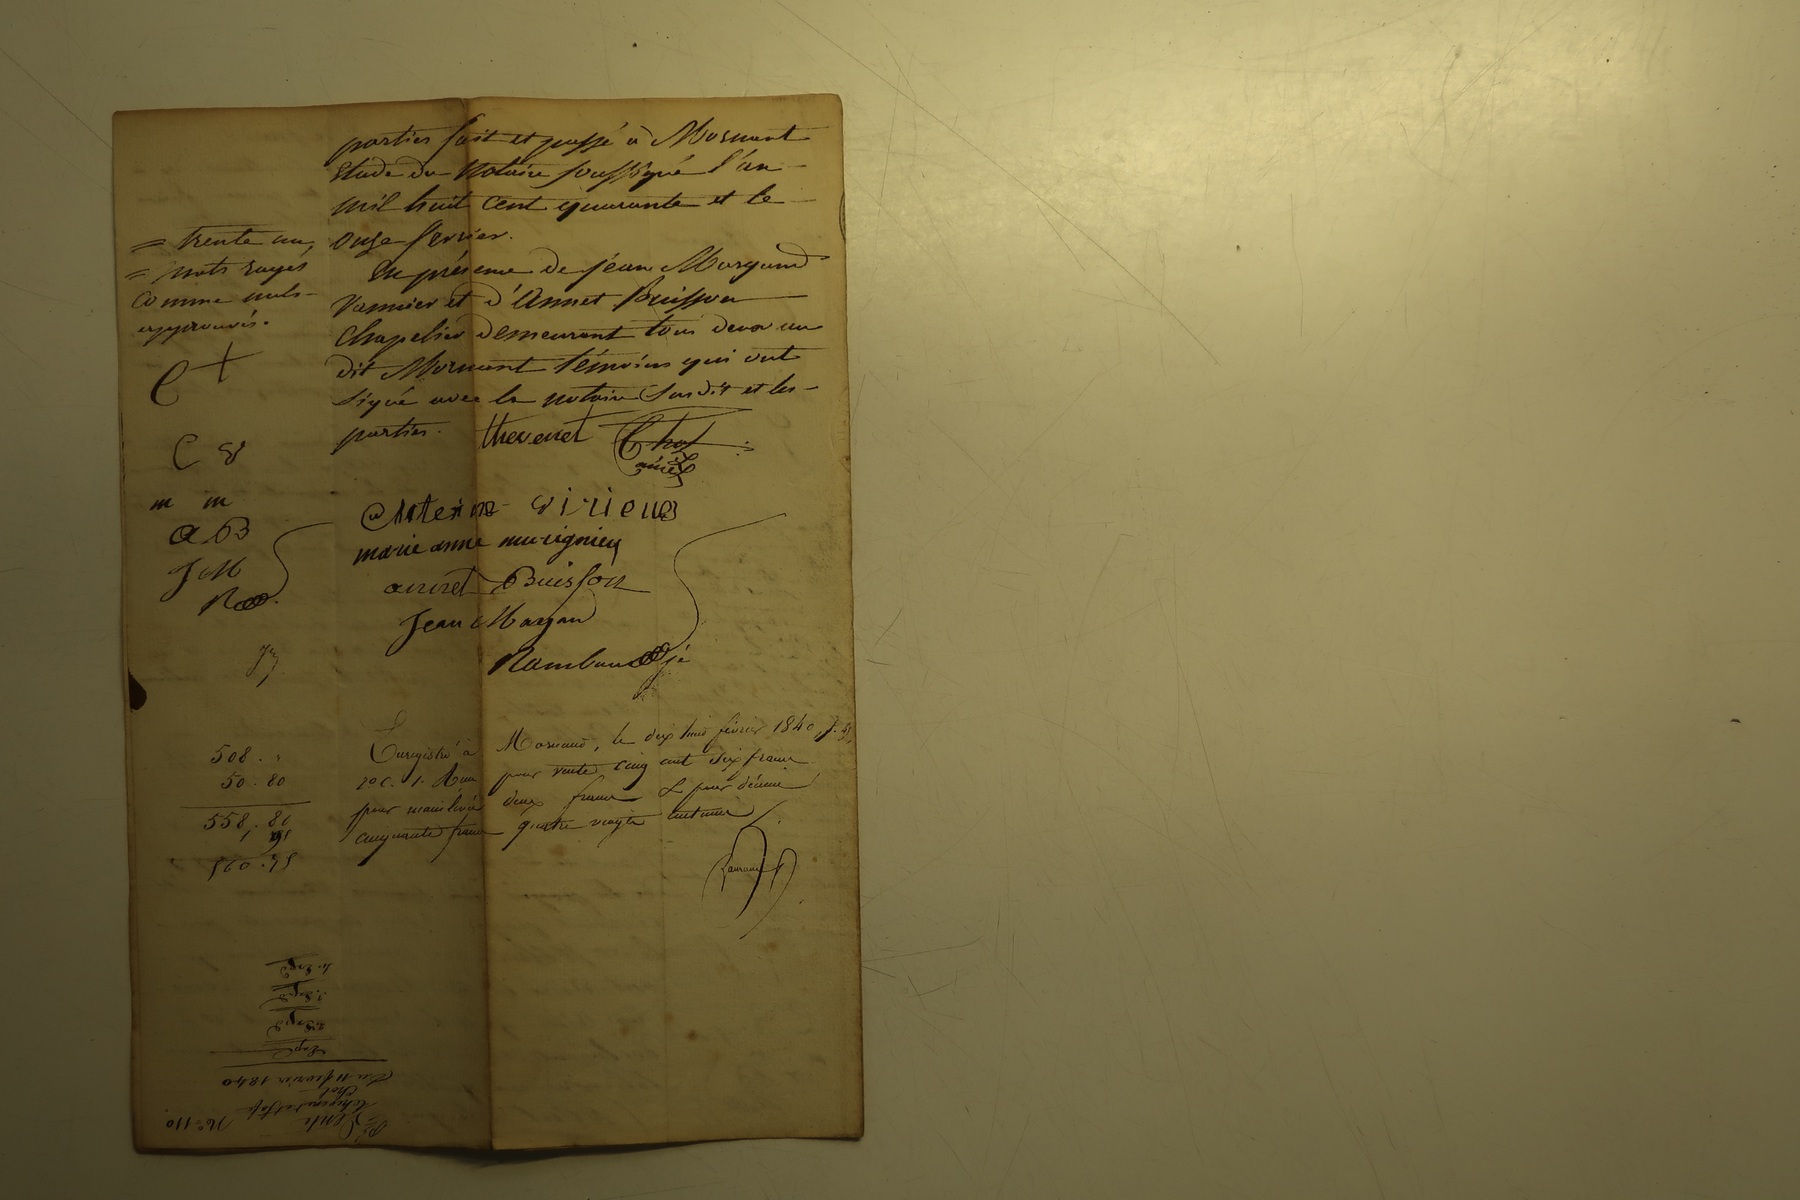 parties fait et passé à Mornant
Etude du Notaire soussigné l'an
mil huit cent quarante et le
onze février.
En présence de Jean Margand
Vannier et d'Annet Buisson
Chapelier demeurant tous deux au
dit Mornant témoins qui ont
signé avec le notaire susdit et les
parties.
= trente un,
= mots rayés
comme nuls
approuvés.
C +
C V
m m
A B
J M
R
thevenet Chol
ainé
virieux
marie anne
annet Buisson
Jean Margan
Rambaud
508.
50.80
558.80
560.
Enregistré à Mornand, le dix huit février 1840,
pour vente cinq cent six francs
pour mainlevée deux francs & pour décime
cinquante francs quatre vingts centimes
N° 110
Vente
Chol
Du 11 février 1840
Expé